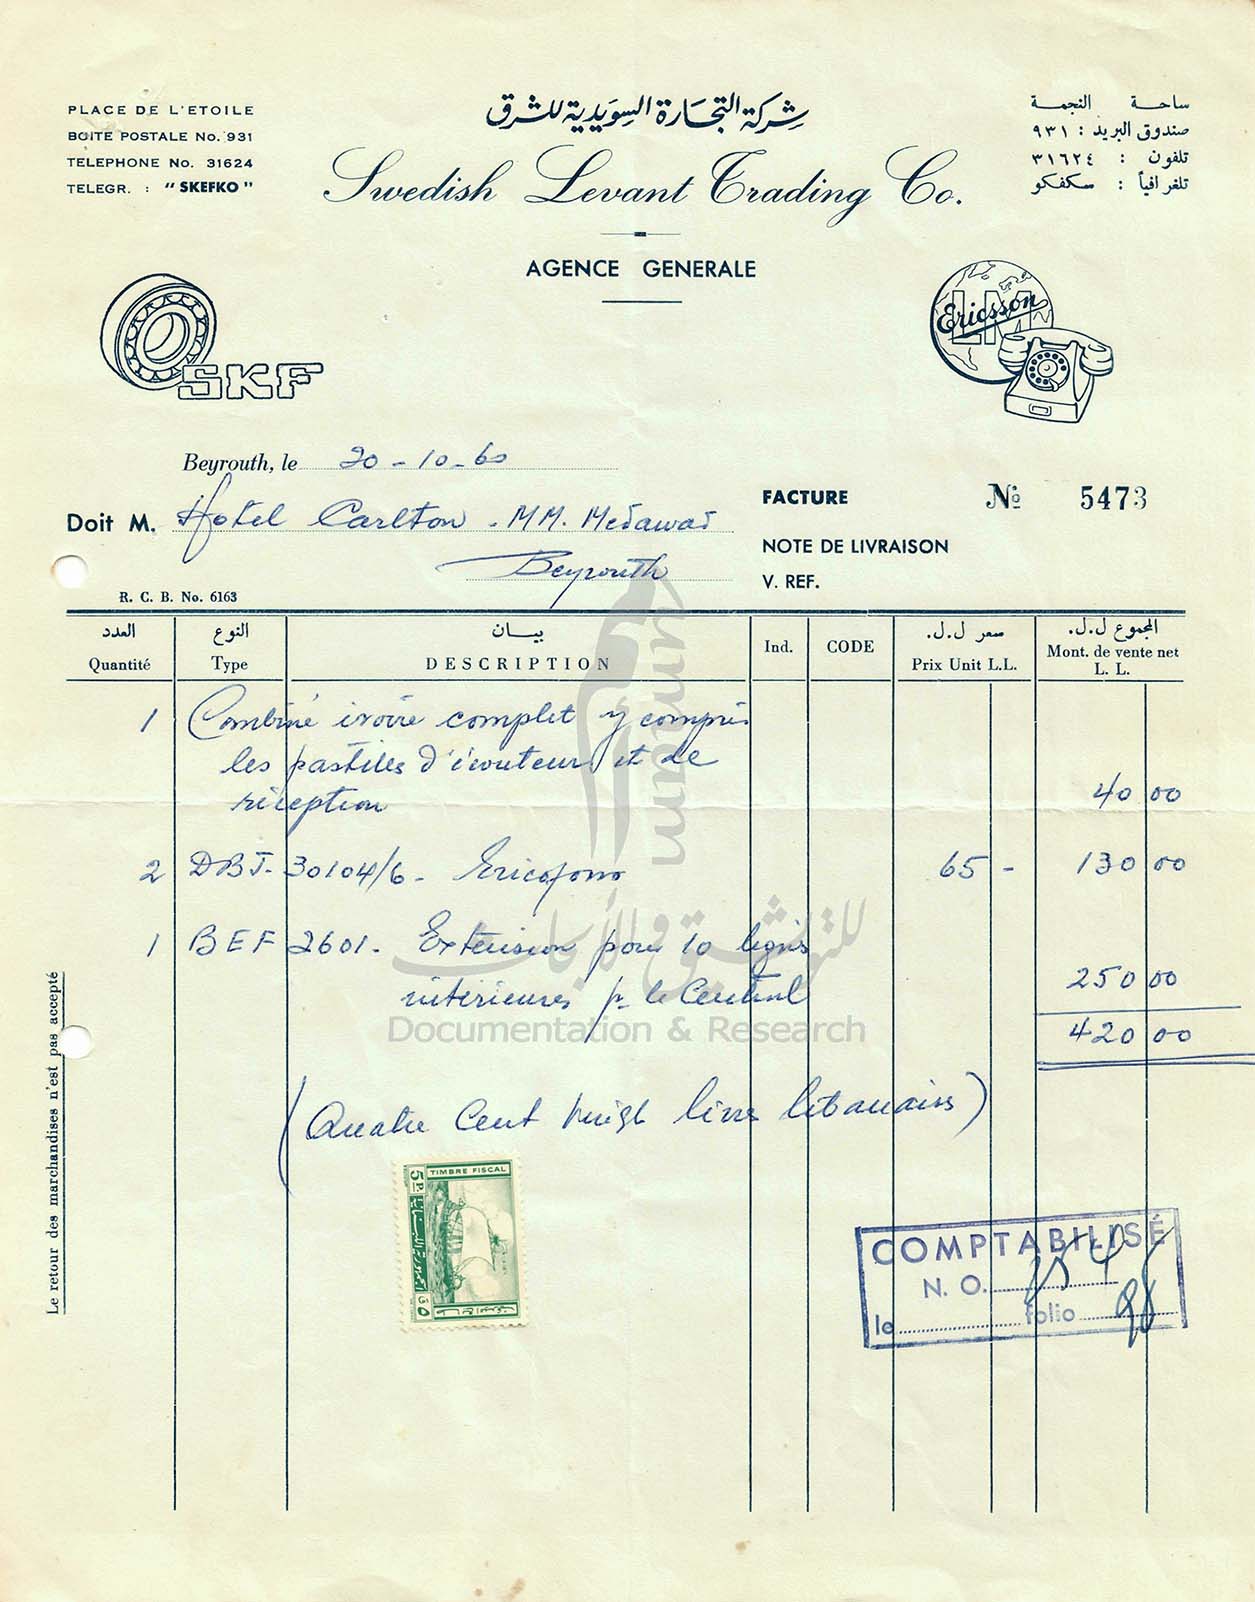 PLACE DE L'ETOILE
BOITE POSTALE No. 931
TELEPHONE No. 31624
TELEGR. : "SKEFKO"
شركة التجارة السويدية للشرق
Swedish Levant Trading Co.
AGENCE GENERALE
ساحة النجمة
صندوق البريد : ٩٣١
تلفون : ٣١٦٢٤
تلغرافياً : سكفكو
SKF
LM
Ericsson
Beyrouth, le 20-10-60
Doit M. Hotel Carlton - MM. Medawar
Beyrouth
R. C. B. No. 6163
FACTURE № 5473
NOTE DE LIVRAISON
V. REF.
العدد النوع بيــان سعر ل.ل. المجموع ل.ل.
Quantité Type DESCRIPTION Ind. CODE Prix Unit L.L. Mont. de vente net L. L.
1 Combiné ivoire complet y compris
les pastilles d'écouteur et de
réception 40 00
2 DBJ- 30104/6 - Ericofono 65 - 130 00
1 BEF 2601 - Extension pour 10 lignes
intérieures pr le Central 250 00
420 00
(Quatre Cent vingt livres libanaises)
Le retour des marchandises n'est pas accepté
TIMBRE FISCAL
5 P.
الجمهورية اللبنانية
٥ ق
COMPTABILISÉ
N. O.
le folio 98
umam
للتوثيق و الأبحاث
Documentation & Research